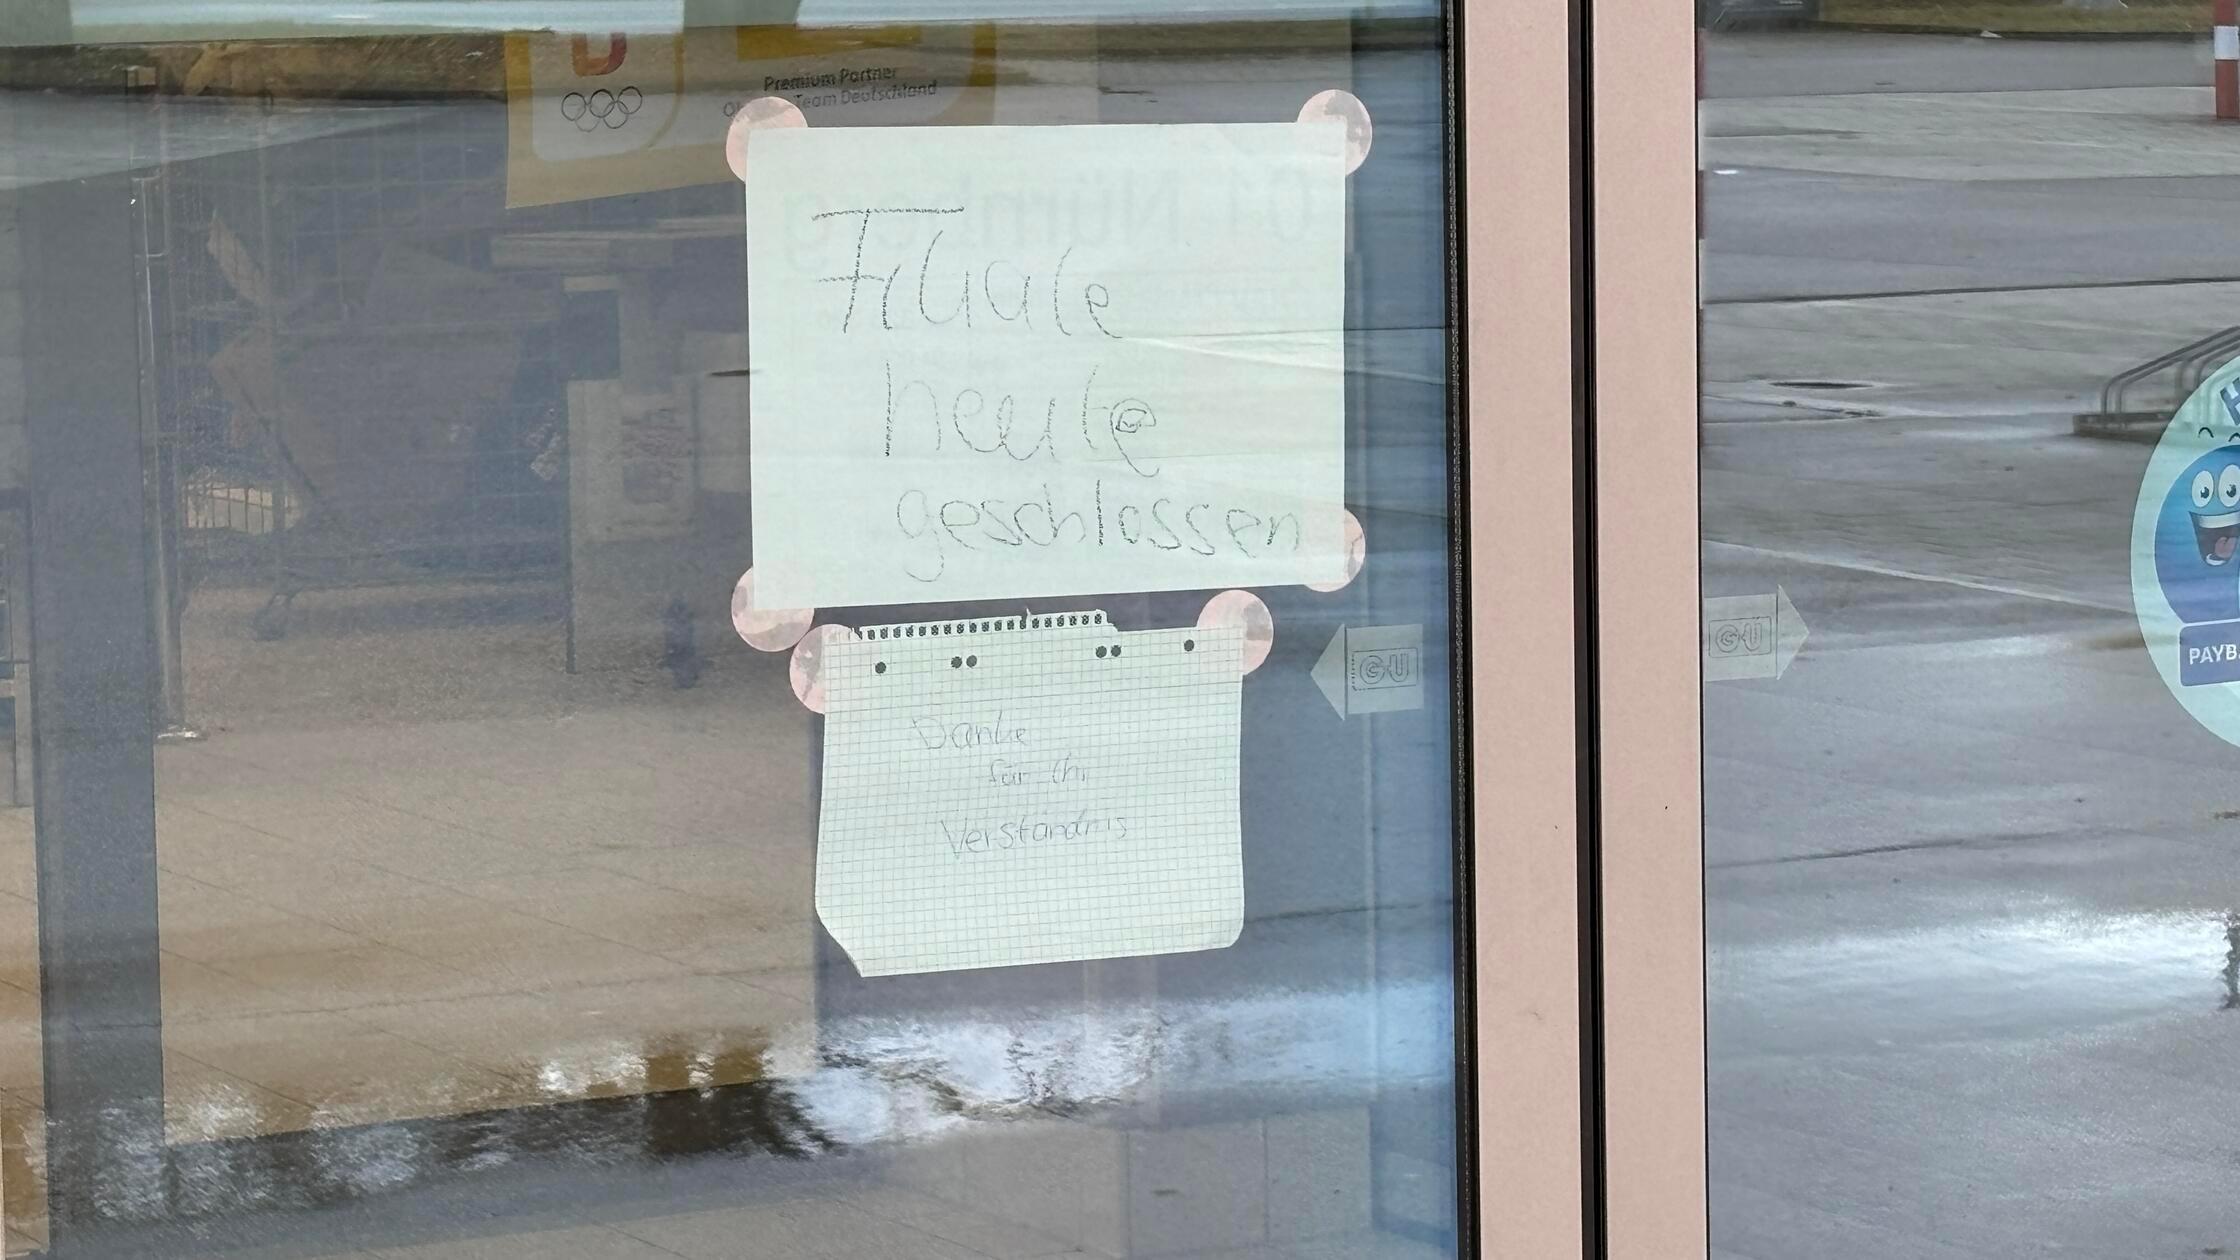 Premium Partner
Team Deutschland
Filiale
heute
geschlossen
Danke
für Ihr
Verständnis
GU
GU
PAYB